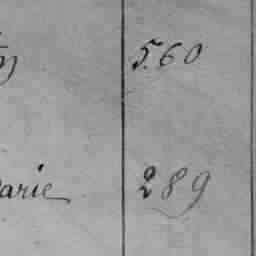 560
arie 289